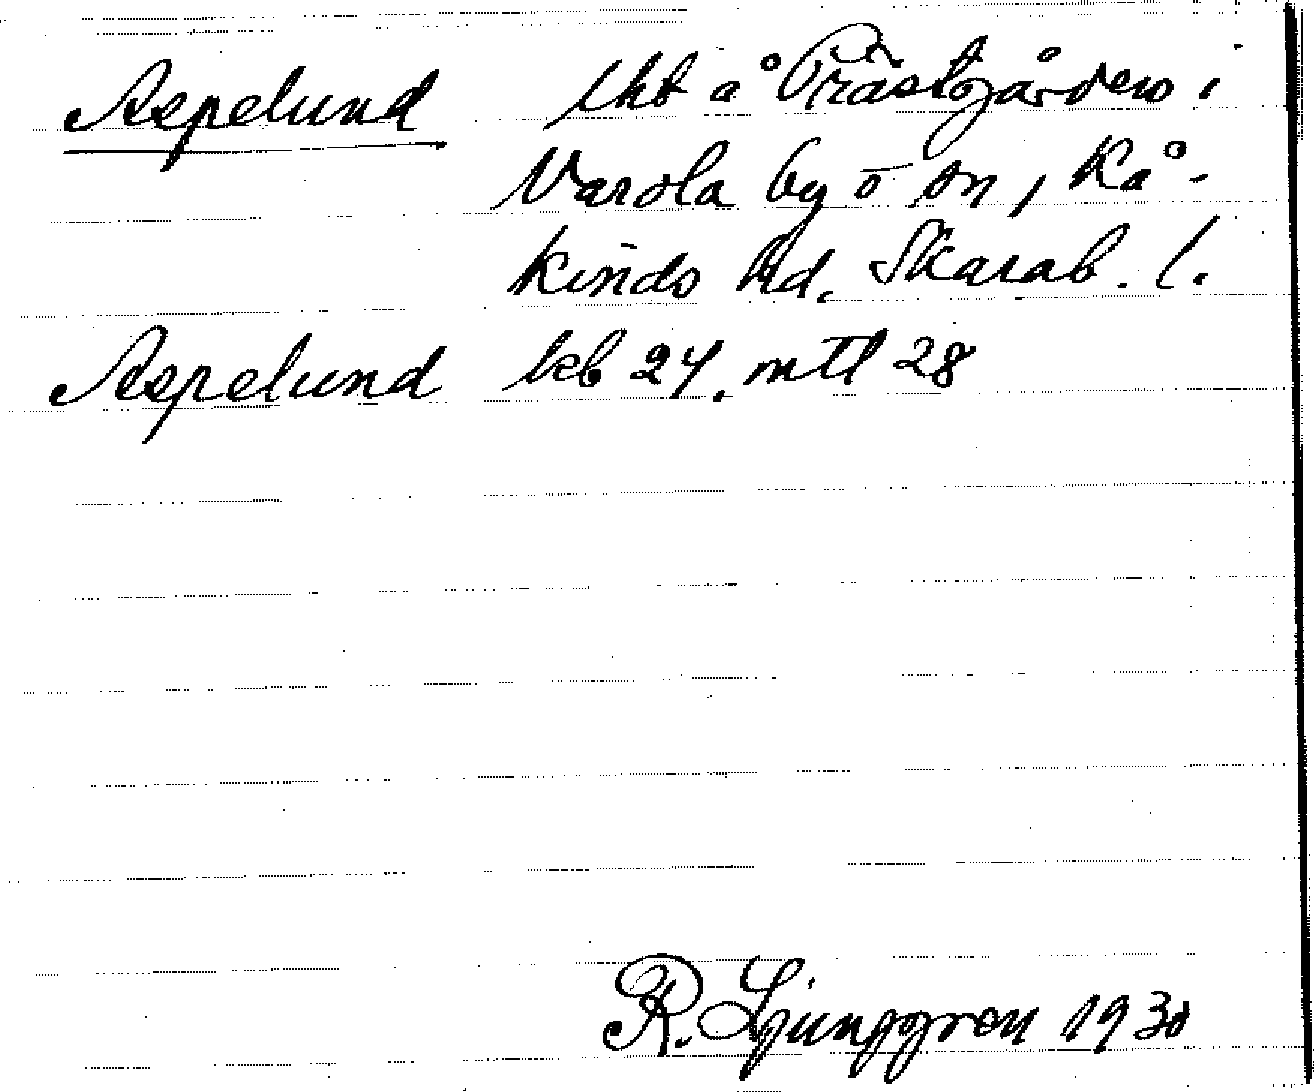 Aspelund lht å Prästgården i
Varola by o sn, Kå-
kinds hd. Skarab. l.
Aspelund kb 24. mtl 28
R. Ljunggren 1930